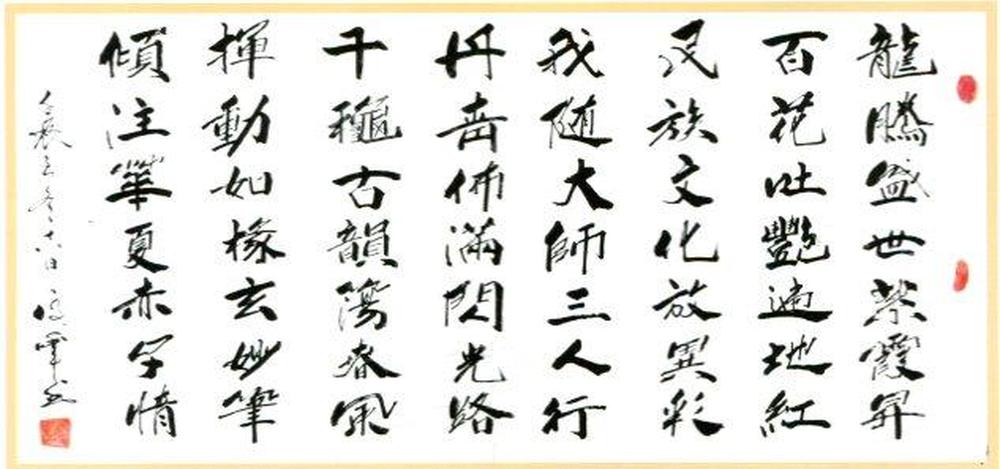 龍騰盛世紫霞昇
百花吐艷遍地紅
民族文化放異彩
我随大師三人行
丹青佈滿閃光路
千龝古韻蕩春風
揮動如椽玄妙筆
傾注華夏赤子情